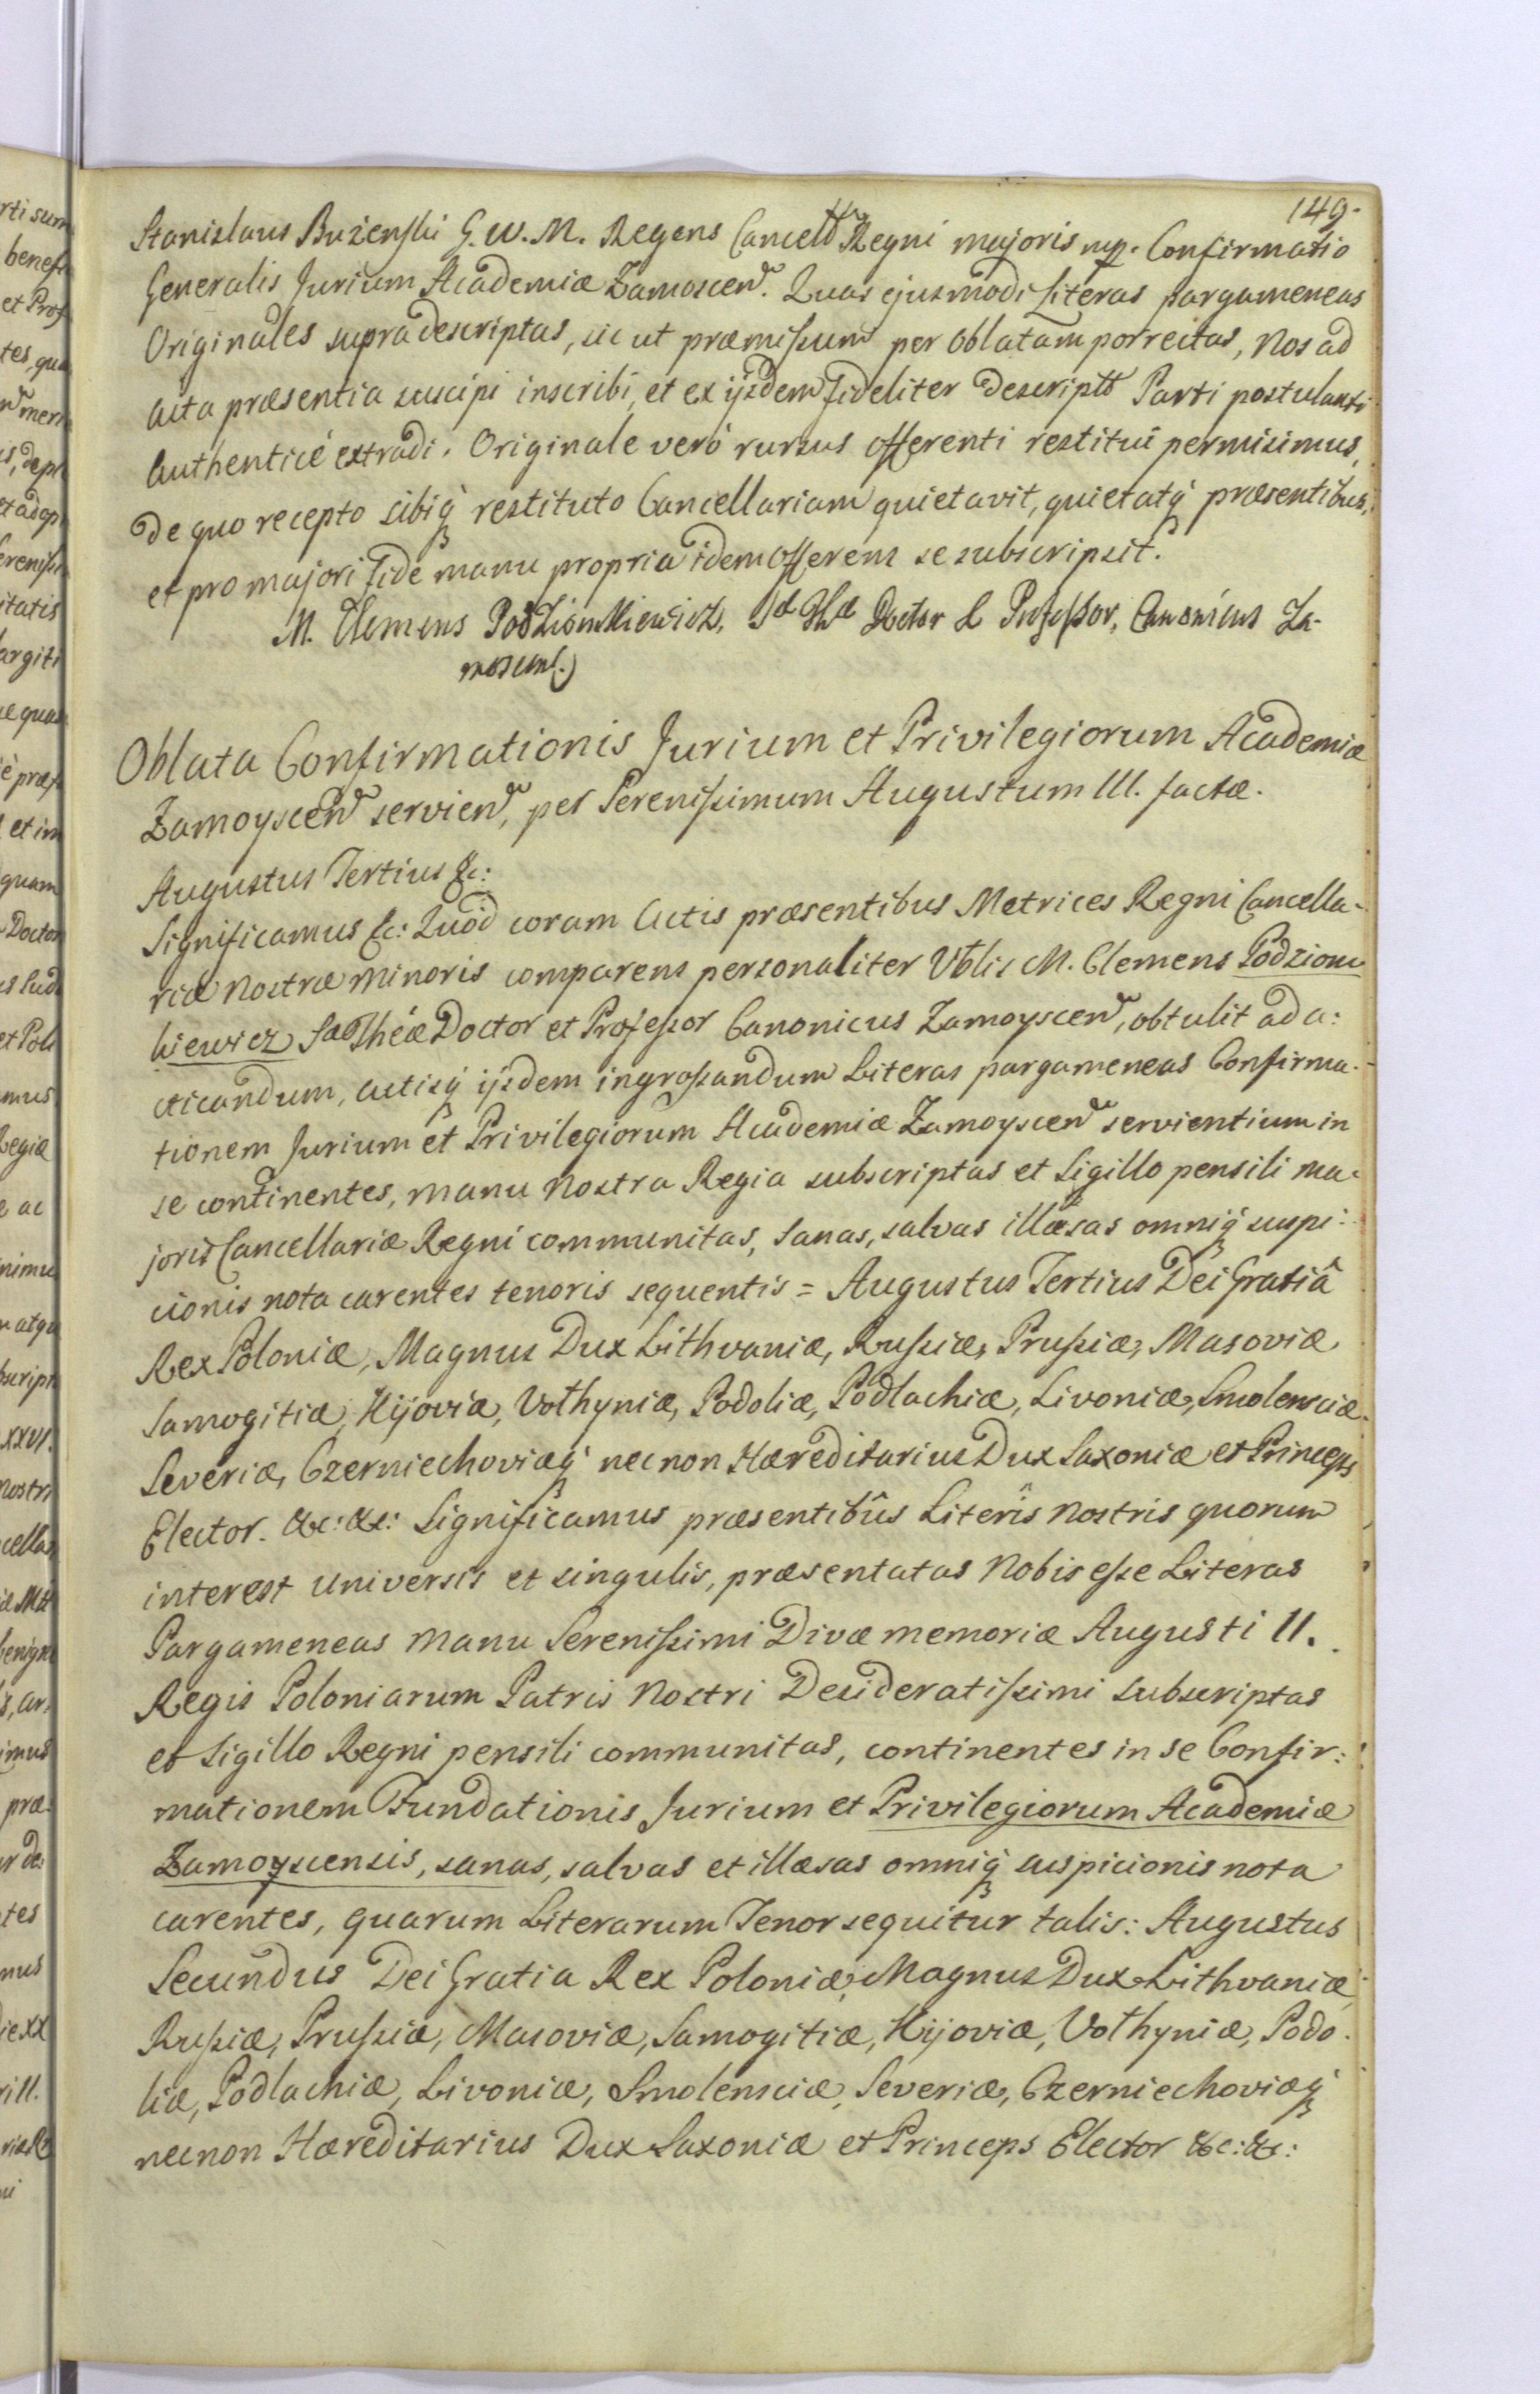 149.
Stanislaus Bużenski G. W. M. Regens Cancell Regni majoris mp. Confirmatio
Generalis Jurium Academiæ Zamoscen. Quas ejusmodi Literas pargameneas
Originales supradescriptas, sic ut præmissum per oblatam porrectas, Nos ad
acta præsentia suscipi inscribi, et ex ijsdem fideliter descriptt Parti postulanti
authenticé extradi. Originale veró rursus offerenti restitui permisimus,
de quo recepto sibiq restituto Cancellariam quietavit, quietatq præsentibus,
et pro majori fide manu propria idem offerens se subscripsit.
M. Clemens Podzionkiewicz, Sæ Thæ Doctor & Professor, Canonicus Za-
moscens.
Oblata Confirmationis Jurium et Privilegiorum Academiæ
Zamoyscen servien, per Serenissimum Augustum III. factæ.
Augustus Tertius &c:
Significamus &c: Quod coram Actis præsentibus Metrices Regni Cancella-
riæ Nostræ Minoris comparens personaliter Vblis M. Clemens Podzion
kiewicz Sæ Theæ Doctor et Professor Canonicus Zamoyscen, obtulit ad a:
cticandum, actisq ijsdem ingrossandum Literas pargameneas Confirma-
tionem Jurium et Privilegiorum Academiæ Zamoyscen servientium in
se continentes, manu Nostra Regia subscriptas et Sigillo pensili ma-
joris Cancellariæ Regni communitas, sanas, salvas illæsas omniq suspi:
cionis nota carentes tenoris sequentis = Augustus Tertius Dei Gratiâ
Rex Poloniæ, Magnus Dux Lithvaniæ, Russiæ, Prussiæ, Masoviæ
Samogitiæ, Kijoviæ, Vothyniæ, Podoliæ, Podlachiæ, Livoniæ, Smolensciæ
Severiæ, Czerniechoviæq necnon Hæreditarius Dux Saxoniæ et Princeps
Elector. &c: &c: Significamus præsentibûs Literîs Nostris quorum
interest universis et singulis, præsentatas Nobis esse Literas
Pargameneas manu Serenissimi Divæ memoriæ Augusti II.
Regis Poloniarum Patris Nostri Desideratissimi subscriptas
et Sigillo Regni pensili communitas, continentes in se Confir:
mationem Fundationis Jurium et Privilegiorum Academiæ
Zamoyscensis, sanas, salvas et illæsas omniq suspicionis nota
carentes, quarum Literarum Tenor sequitur talis: Augustus
Secundus Dei Gratia Rex Poloniæ, Magnus Dux Lithvaniæ,
Russiæ, Prussiæ, Masoviæ, Samogitiæ, Kijoviæ, Vothyniæ, Podo-
liæ, Podlachiæ, Livoniæ, Smolensciæ, Severiæ, Czerniechoviæq
necnon Hæreditarius Dux Saxoniæ et Princeps Elector &c: &c: